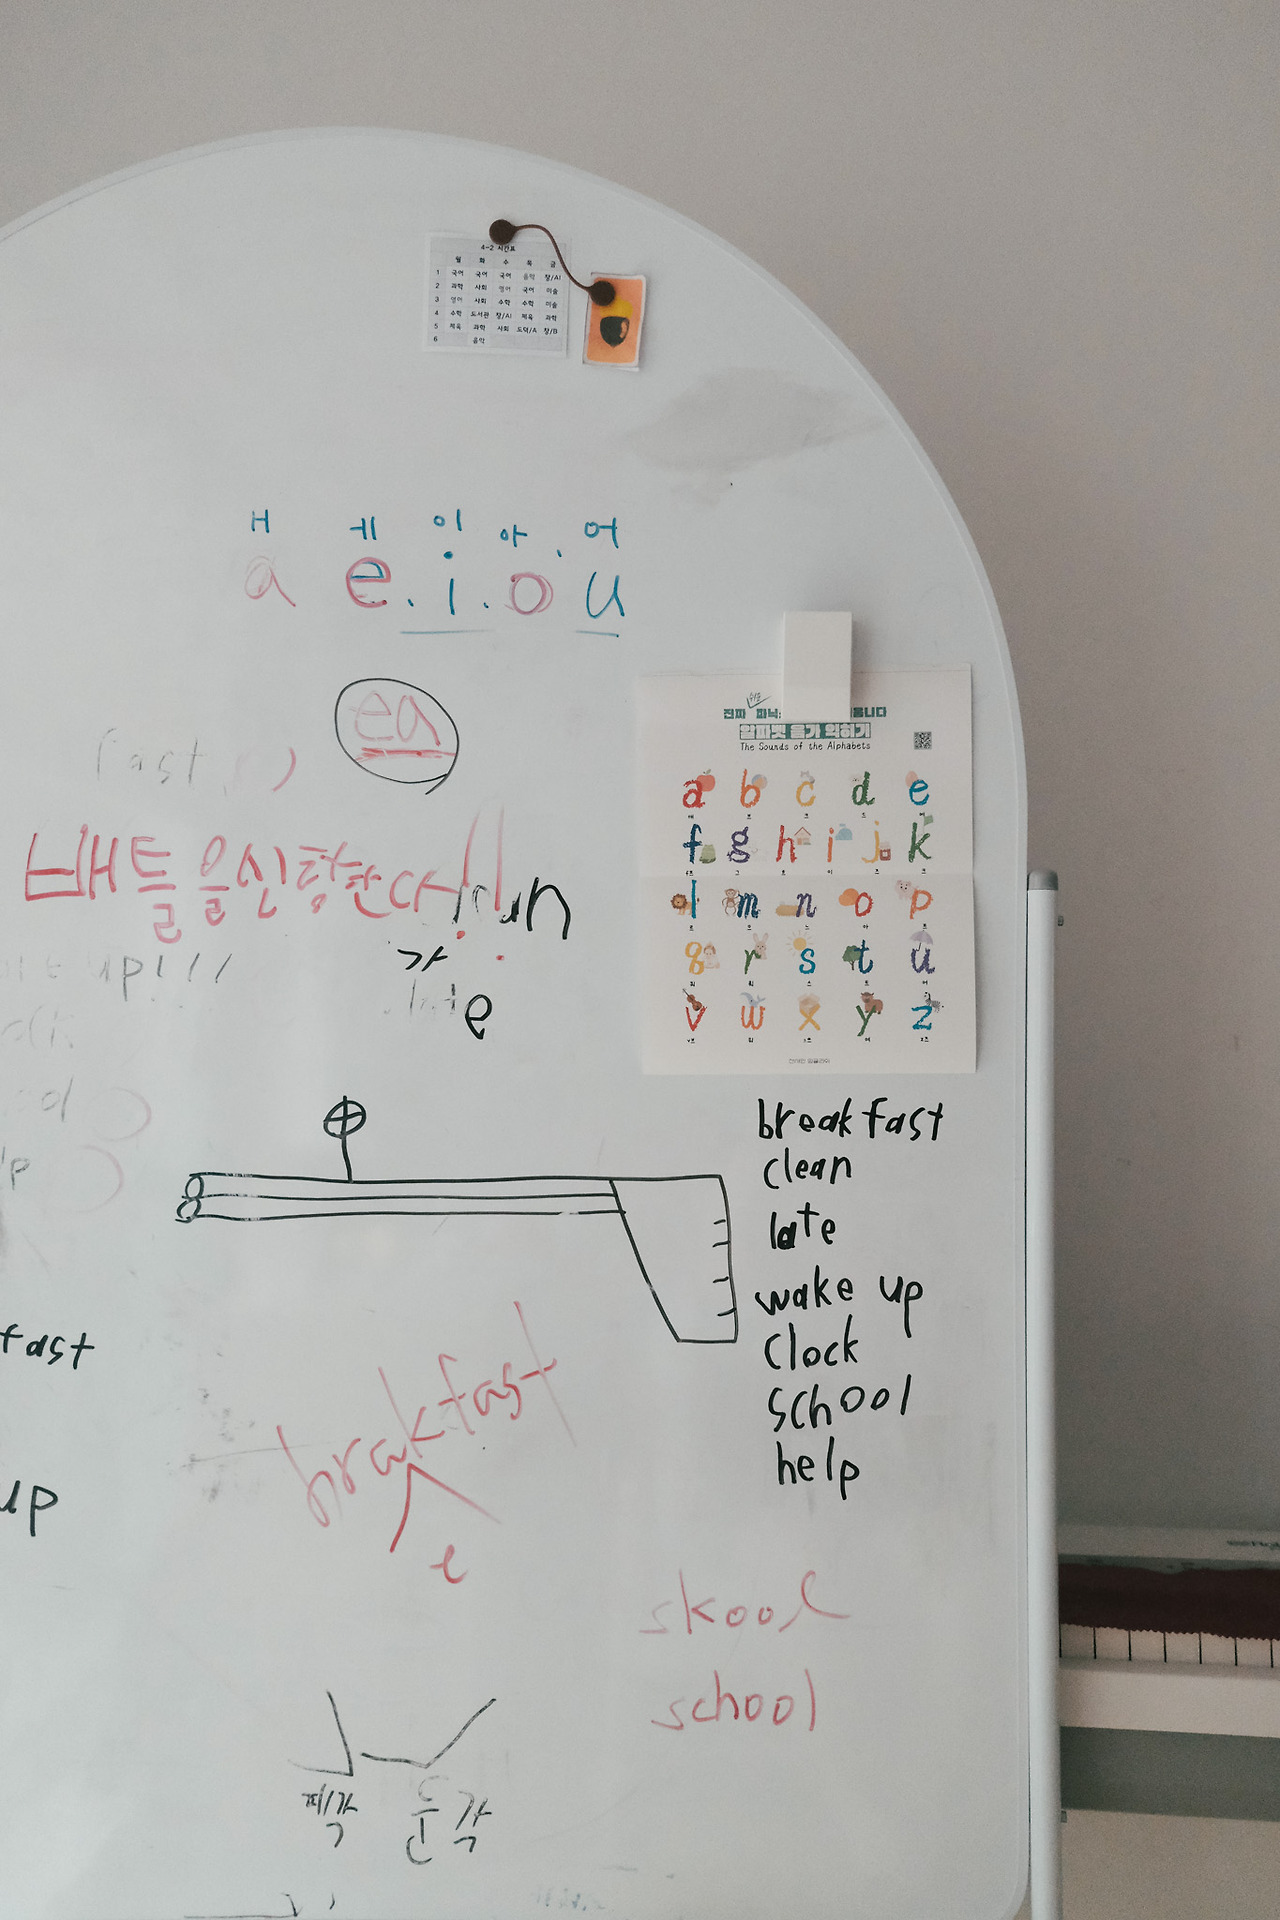 4-2 시간표
월 화 수 목 금
1 국어 국어 국어 음악 창/AI
2 과학 사회 영어 국어 미술
3 영어 사회 수학 수학 미술
4 수학 도서관 창/AI 체육 과학
5 체육 과학 사회 도덕/A 창/B
6 음악
ㅐ ㅔ 이 아 어
a e i o u
ea
fast
진짜 파닉스
알파벳 음가 익히기
The Sounds of the Alphabets
a b c d e
f g h i j k
l m n o p
q r s t u
v w x y z
배틀을신청한다!!
run
가
up!!!
late
breakfast
clean
late
wake up
clock
school
help
fast
brakfast
e
up
skool
school
둔각